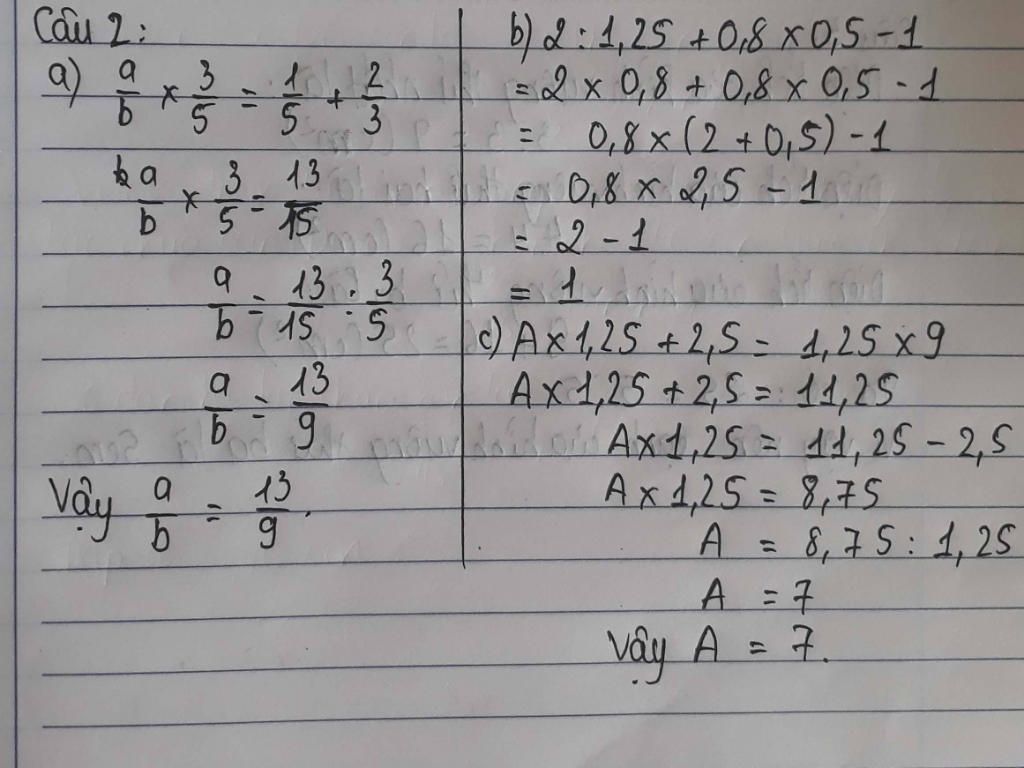 Câu 2:
a) a/b × 3/5 = 1/5 + 2/3
a/b × 3/5 = 13/15
a/b = 13/15 : 3/5
a/b = 13/9
Vậy a/b = 13/9.
b) 2 : 1,25 + 0,8 × 0,5 - 1
= 2 × 0,8 + 0,8 × 0,5 - 1
= 0,8 × (2 + 0,5) - 1
= 0,8 × 2,5 - 1
= 2 - 1
= 1
c) A × 1,25 + 2,5 = 1,25 × 9
A × 1,25 + 2,5 = 11,25
A × 1,25 = 11,25 - 2,5
A × 1,25 = 8,75
A = 8,75 : 1,25
A = 7
Vậy A = 7.